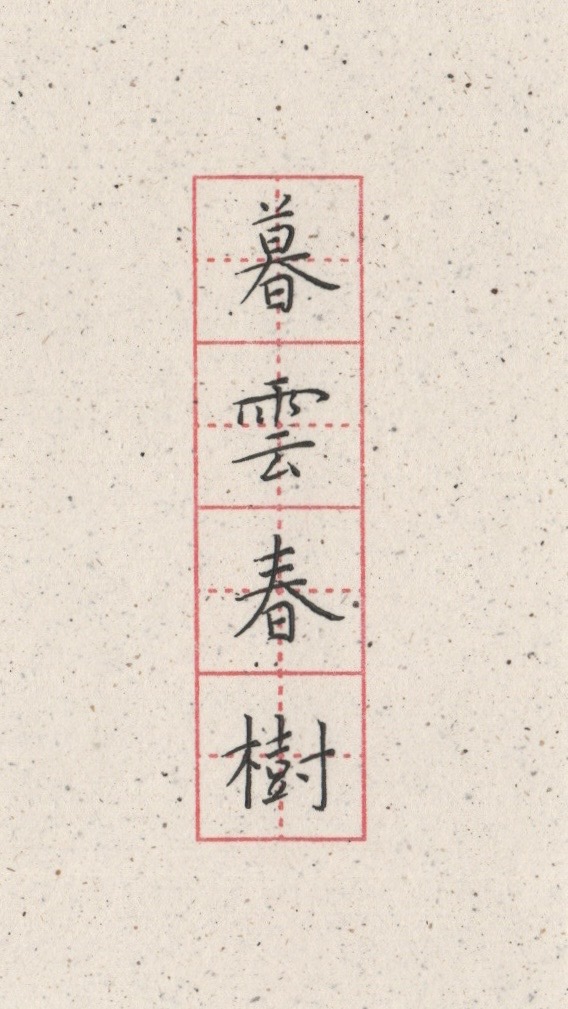 暮雲春樹